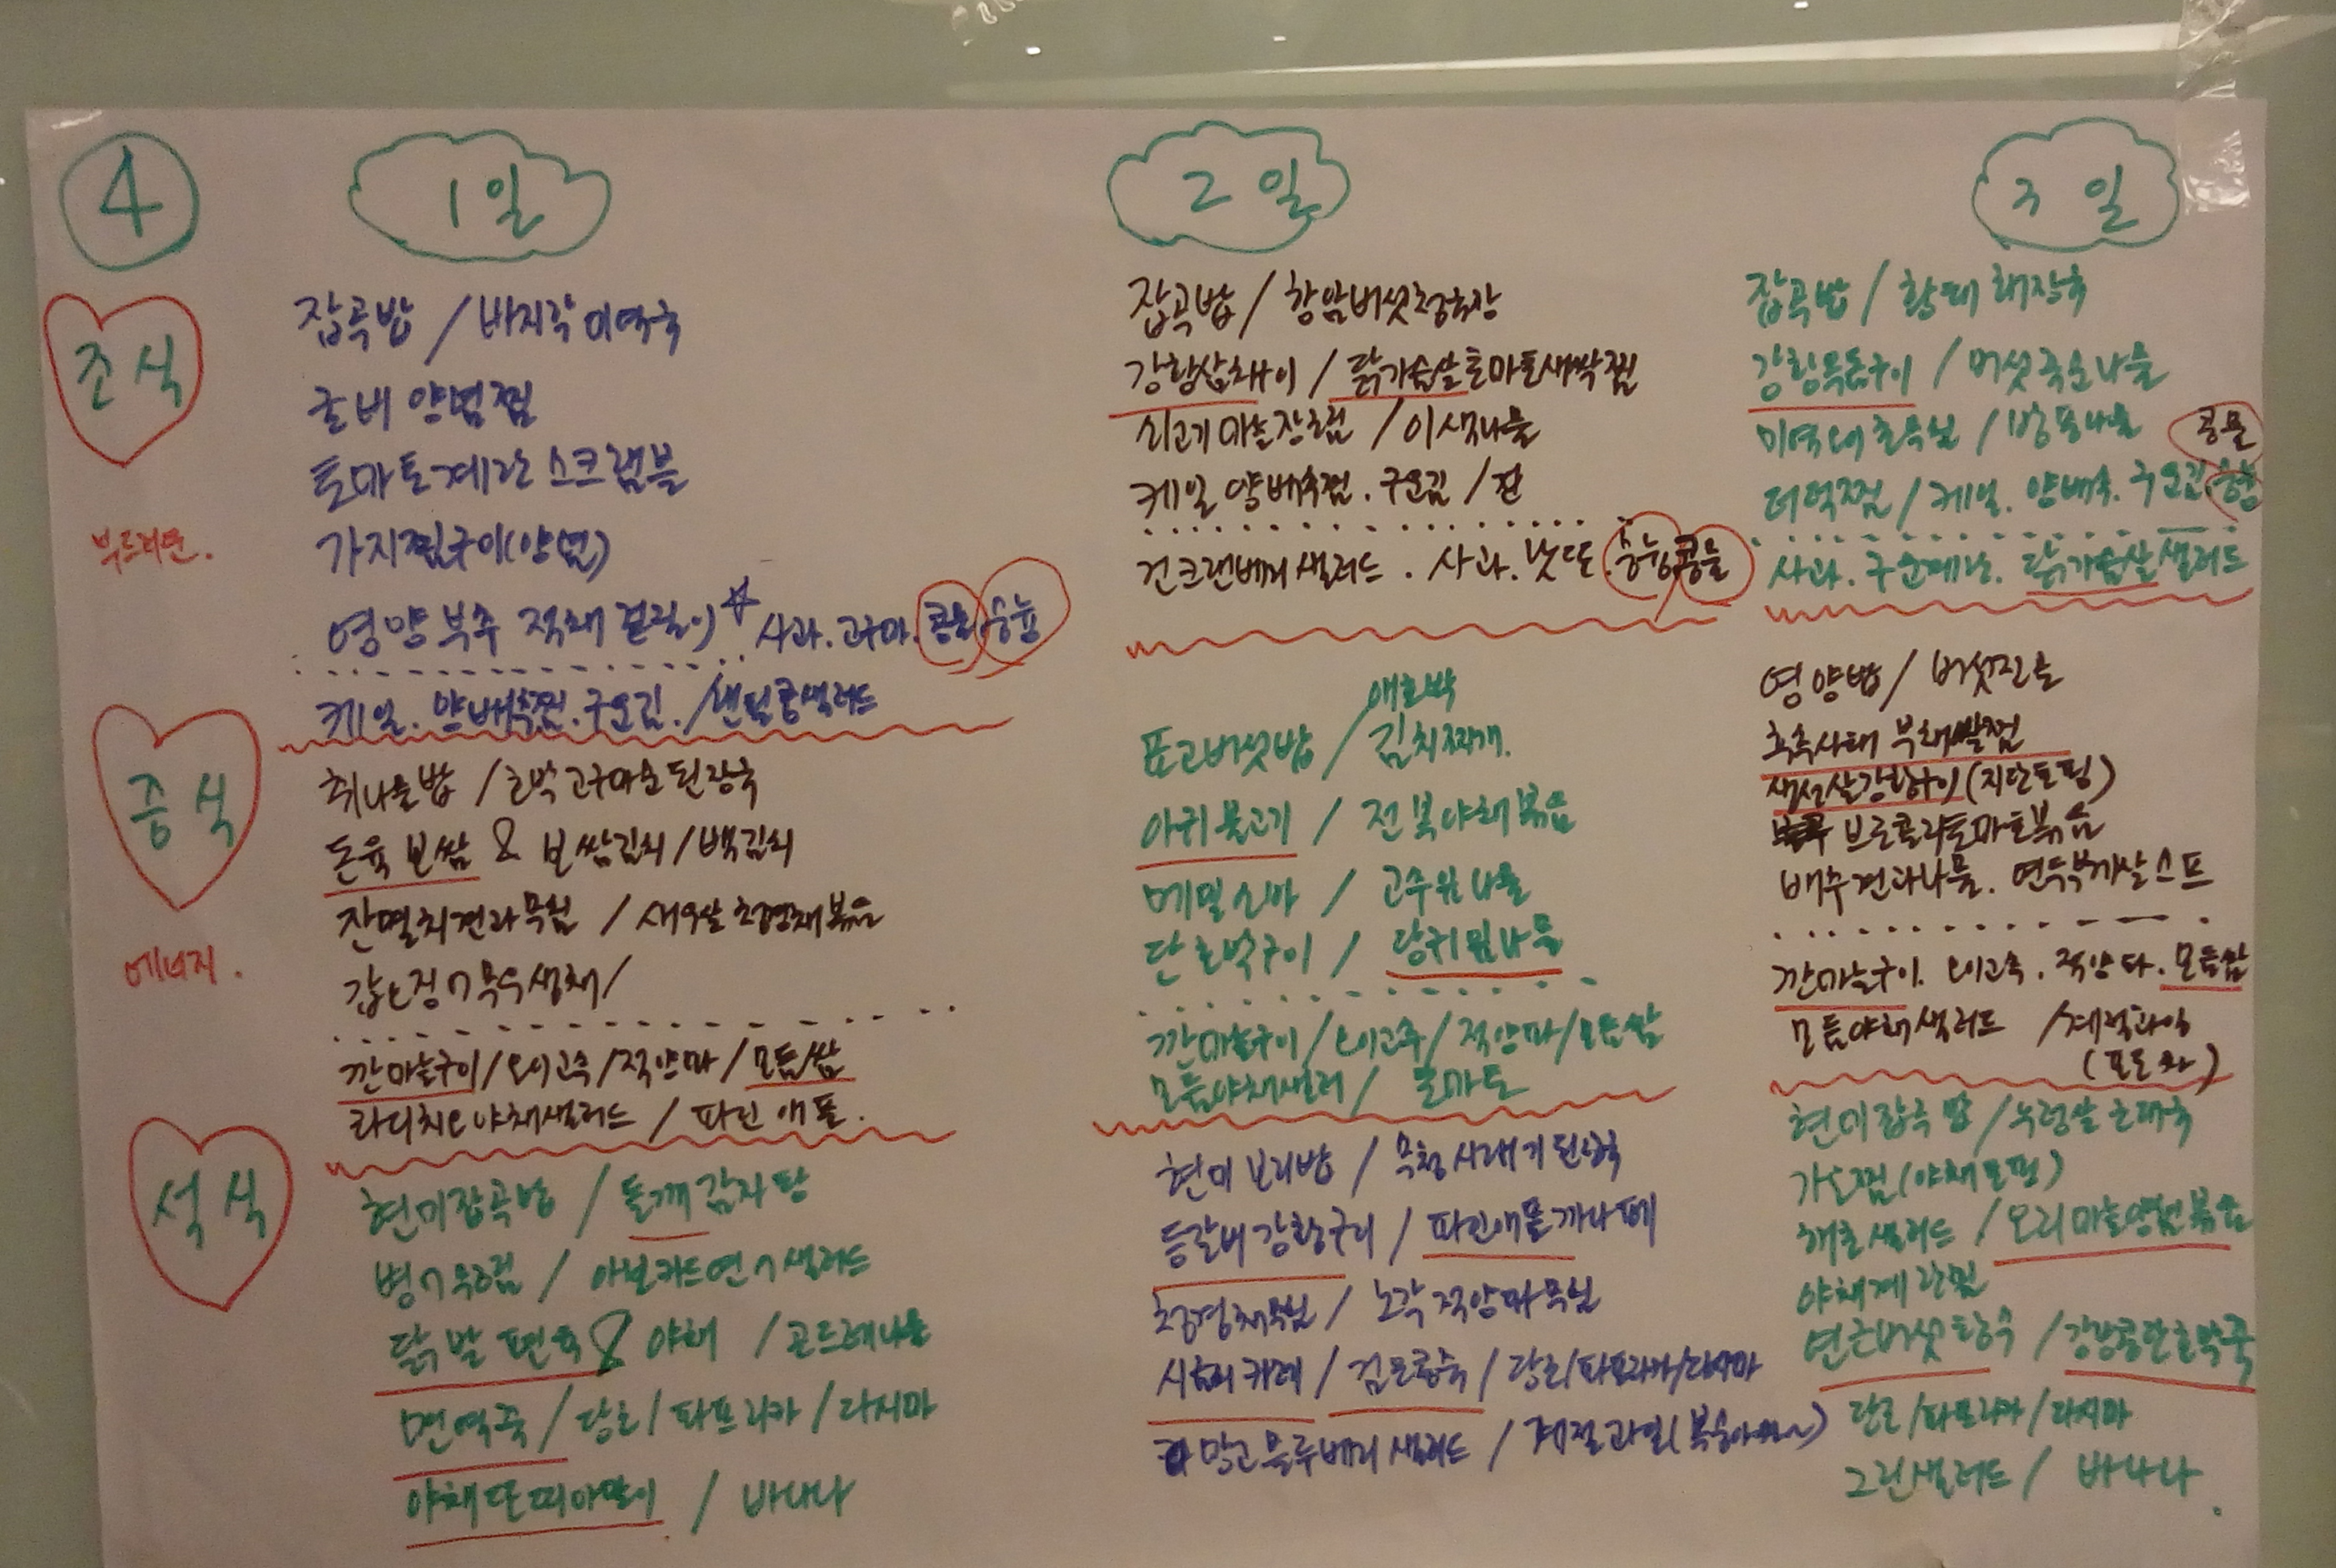 4
1일
2일
3일
조식
부드러운.
잡곡밥 / 바지락미역국
굴비 양념찜
토마토계란 스크램블
가지찜구이(양념)
영양부추 적채 겉절이 ☆ 사과. 고구마. 콩물 숭늉
케일. 양배추찜. 구운김. / 렌틸콩샐러드
잡곡밥 / 항암버섯청국장
강황삼채구이 / 닭가슴살토마토새싹찜
쇠고기마늘장조림 / 이색나물
케일 양배추찜. 구운김 / 전
건크랜베리샐러드. 사과. 낫또. 숭늉 콩물
잡곡밥 / 황태 해장국
강황목등구이 / 버섯죽순나물
미역오이초무침 / 방풍나물 콩물
더덕찜 / 케일. 양배추. 구운김 숭늉
사과. 구운계란. 닭가슴살샐러드
중식
에너지.
취나물밥 / 호박고구마순된장국
돈육 보쌈 & 보쌈김치 / 백김치
잔멸치견과무침 / 새우살청경채볶음
무우생채 /
깐마늘구이 / 오이고추 / 적양파 / 모듬쌈
라디치오야채샐러드 / 파인애플.
표고버섯밥 / 애호박
김치찌개.
아귀불고기 / 전복야채볶음
메밀소바 / 고추잎나물
단호박구이 / 당귀잎나물
깐마늘구이 / 오이고추 / 적양파 / 모듬쌈
모듬야채샐러 / 토마토
영양밥 / 버섯전골
부채쌈찜
생선살강황구이(지단토핑)
브로콜리토마토볶음
배추견과나물. 연두부게살스프
깐마늘구이. 오이고추. 적양파. 모듬쌈
모듬야채샐러드 / 계절과일
(포도)
석식
현미잡곡밥 / 들깨감자탕
아보카도연어샐러드
닭발편육 & 야채 / 곤드레나물
면역죽 / 당근 / 파프리카 / 다시마
야채또띠아말이 / 바나나
현미보리밥 / 시래기된장국
등갈비강황구이 / 파인애플까나페
청경채무침 / 노각적양파무침
카레 / 검은콩죽 / 당근 / 파프리카 / 다시마
망고블루베리샐러드 / 계절과일(복숭아)
현미잡곡밥 / 누룽살
(야채토핑)
해초샐러드 / 오리마늘양념볶음
야채계란찜
연근버섯탕수 / 강낭콩단호박죽
당근 / 파프리카 / 다시마
그린샐러드 / 바나나.